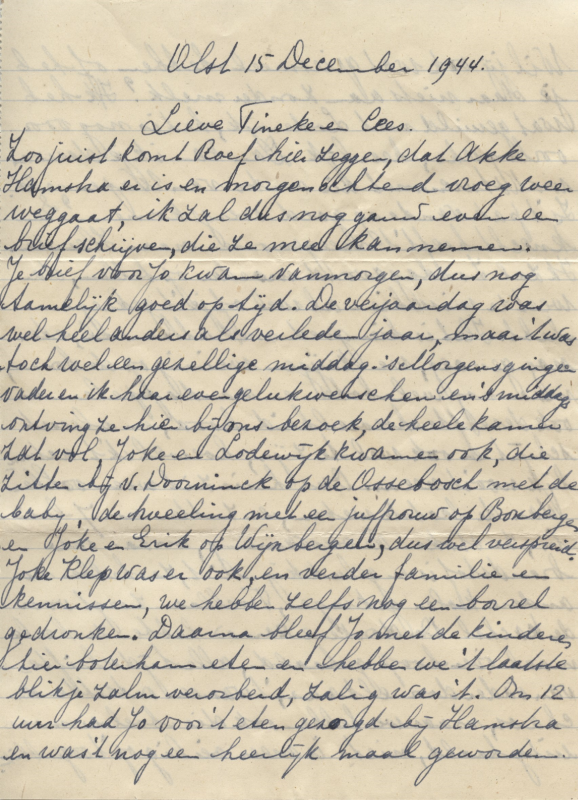 Olst 15 December 1944.
Lieve Tineke en Cees.
Zoo juist komt Roef hier zeggen, dat Akke
Hamstra er is en morgenochtend vroeg weer
weggaat, ik zal dus nog gauw even een
brief schrijven, die ze mee kan nemen.
Je brief voor Jo kwam vanmorgen, dus nog
tamelijk goed op tijd. De verjaardag was
wel heel anders als verleden jaar, maar 't was
toch wel een gezellige middag. 's Morgens gingen
vader en ik haar even gelukwenschen en 's middags
ontving ze hier bij ons bezoek, de heele kamer
zat vol, Joke en Lodewijk kwamen ook, die
zitten bij v. Doorninck op de Ossebosch met de
baby, de tweeling met een juffrouw op Boxbergen
en Joke en Erik op Wijnbergen, dus wel verspreid.
Joke Klep was er ook, en verder familie en
kennissen, we hebben zelfs nog een borrel
gedronken. Daarna bleef Jo met de kinderen
hier boterham eten en hebben we 't laatste
blikje zalm verorberd, zalig was 't. Om 12
uur had Jo voor 't eten gezorgd bij Hamstra
en was 't nog een heerlijk maal geworden.